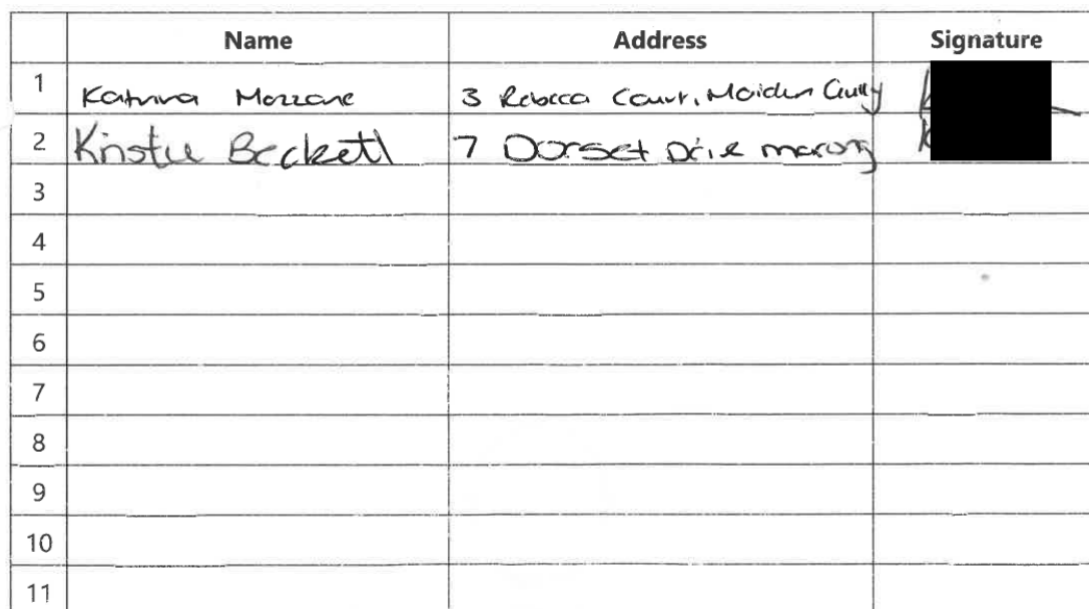 Name Address Signature
1 Katrina Mozzane 3 Rebecca Court, Maiden Gully
2 Kristie Beckett 7 Dorset Drive marong
3
4
5
6
7
8
9
10
11